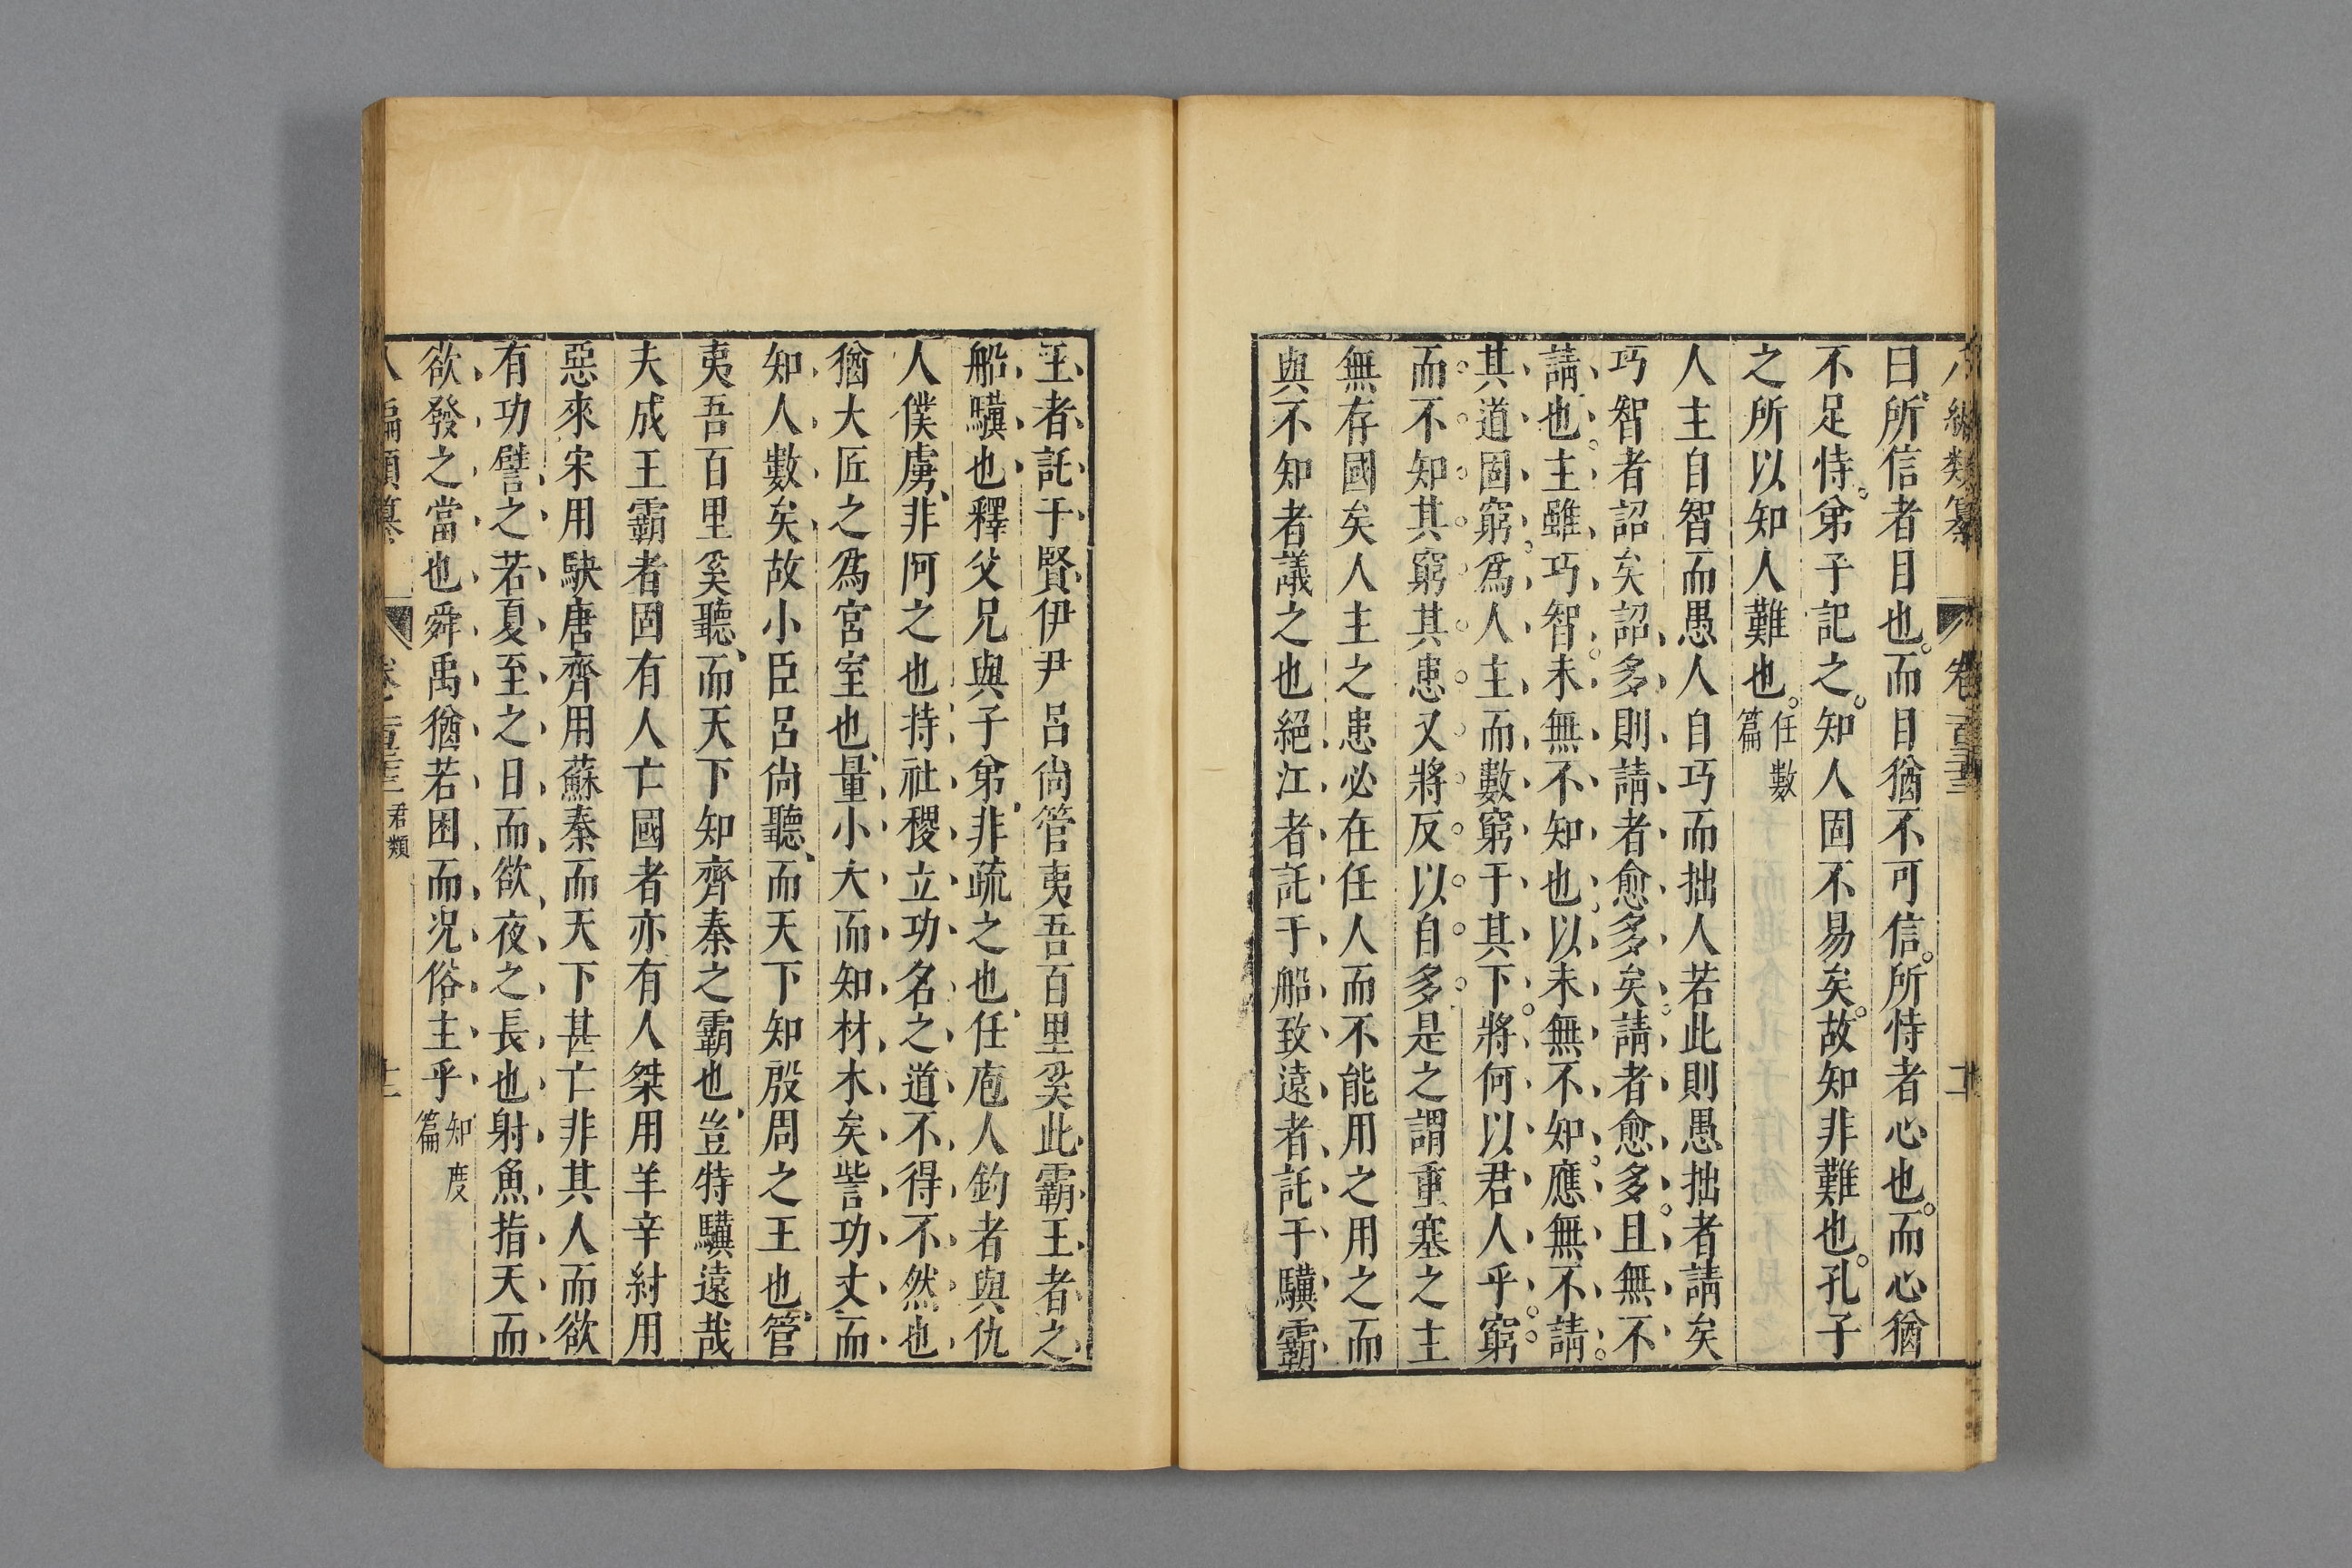 日所信者目也而目猶不可信所恃者心也而心猶
不足恃弟子記之知人固不易矣故知非難也孔子
之所以知人難也任數篇
人主自智而愚人自巧而拙人若此則愚拙者請矣
巧智者詔矣詔多則請者愈多矣請者愈多且無不
請也主雖巧智未無不知也以未無不知應無不請
其道固窮爲人主而數窮于其下將何以君人乎窮
而不知其窮其患又將反以自多是之謂重塞之主
無存國矣人主之患必在任人而不能用之用之而
與不知者議之也絕江者託于船致遠者託于驥霸
王者託于賢伊尹呂尙管夷吾百里奚此霸王者之
船驥也釋父兄與子弟非疏之也任庖人釣者與仇
人僕虜非阿之也持社稷立功名之道不得不然也
猶大匠之爲宮室也量小大而知材木矣訾功丈而
知人數矣故小臣呂尙聽而天下知殷周之王也管
夷吾百里奚聽而天下知齊秦之霸也豈特驥遠哉
夫成王霸者固有人亡國者亦有人桀用羊辛紂用
惡來宋用駃唐齊用蘇秦而天下甚亡非其人而欲
有功譬之若夏至之日而欲夜之長也射魚指天而
欲發之當也舜禹猶若困而况俗主乎知度篇
君類